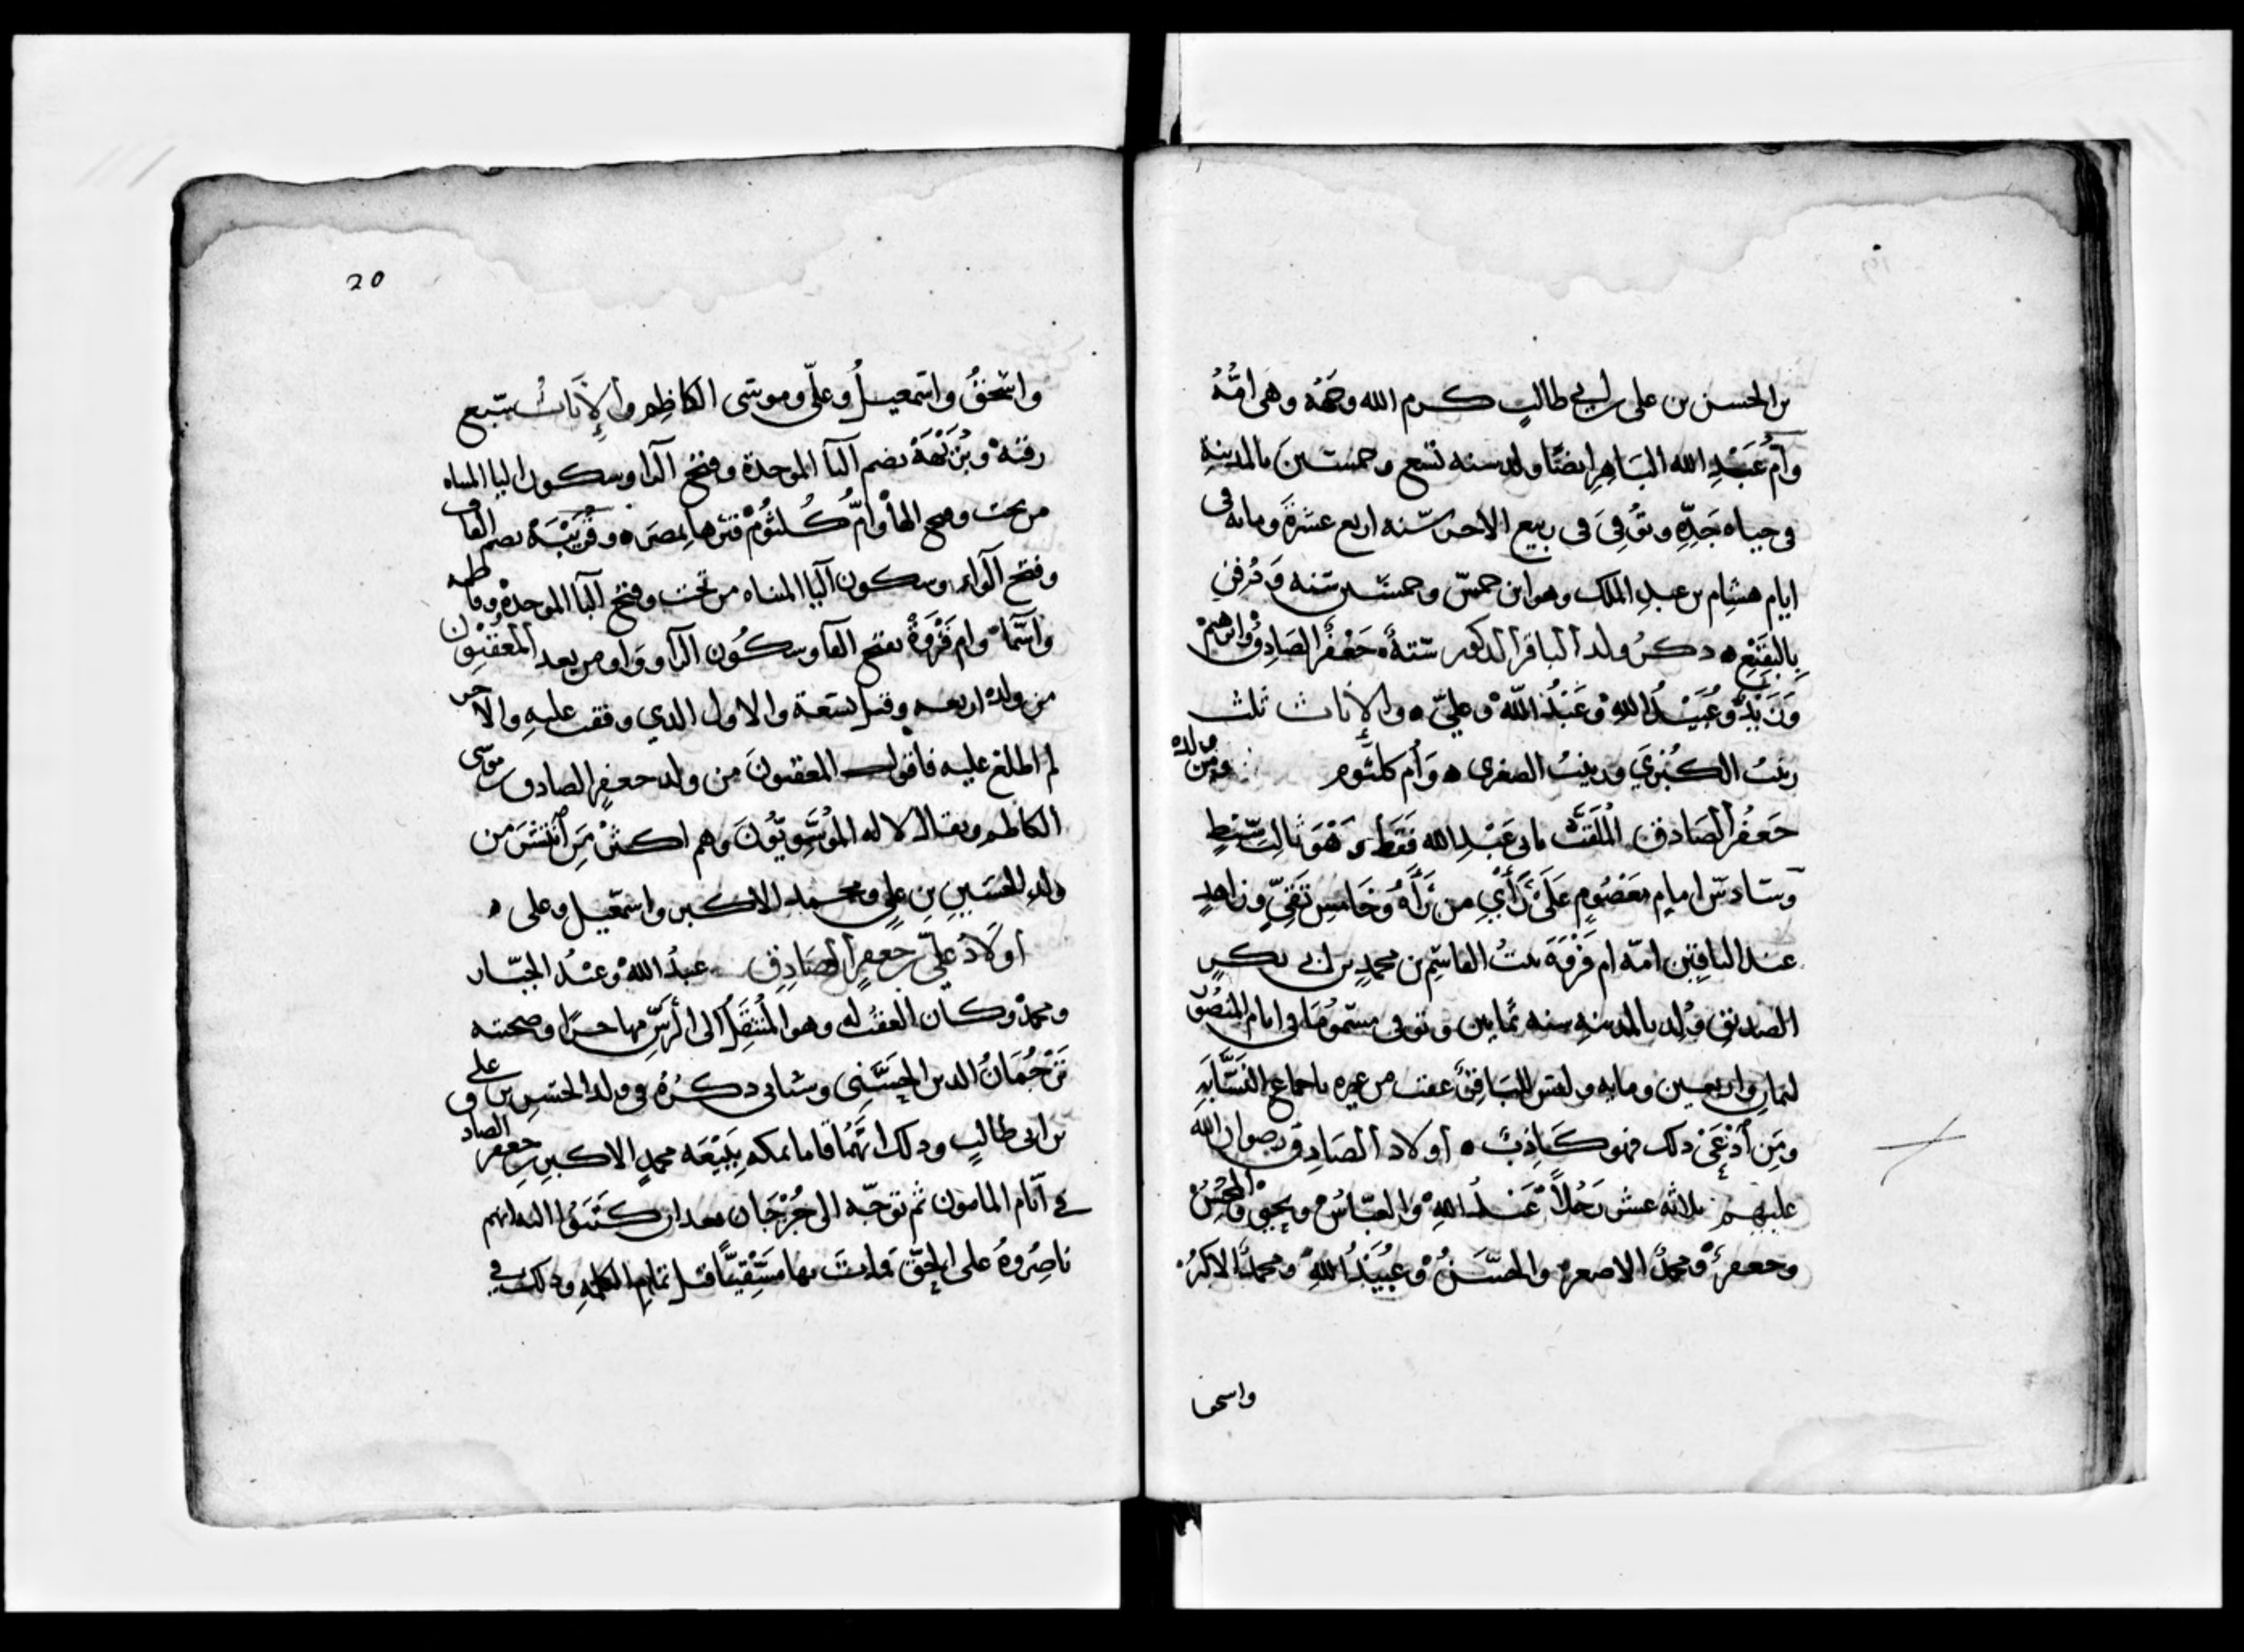 بن الحسن بن على بن ابي طالبٍ كرم الله وجهَهُ وهى امُّهُ
وأمّ عَبْدِ الله البَاهِرِ ايضًا ولد سنه تسع وخمسين بالمدينهِ
فى حياه جَدِّهِ وتُوُفِىَ فى ربيع الاخر سنه اربع عشرةَ ومايه فى
ايام هشام بن عبدِ الملك وهو ابن خمس وخمسين سنه وَدُفِنَ
بِالبَقِيْعِ ذكرُ ولد الباقر المذكور ستةٌ جَعْفَرُ الصَادِقُ وابرهيمُ
وَزَيْدٌ وعُبَيْدُ اللهِ وعَبْدُ اللهِ وعليّ والإناث ثلث
زينبُ الكُبْرَي وزينبُ الصغرى وَأُم كلثوم ومن ولده
جَعفرُ الصَادق المُلَقَّبُ بابى عَبْدِ الله فَقَط وَهْوَ ثالث سِبْطٍ
وسَادس امام مَعْصُومٍ عَلَى رَأْيِ من رَآهُ وَخَامس تَقِيٍّ وزاهدٍ
عند الباقين امّه ام فَرْوَةَ بنتُ القاسِمِ بن محمدِ بن ابى بكرٍ
الصديق وُلد بالمدينهِ سنه ثمانين وتوفى مسمُومًا فى ايام المنصُور
لثمانٍ واربعين ومايه وليس للبَاقِر عقب من غيره باجماع النسَّابَهِ
ومَنِ ادَّعَى ذلك فهو كَاذِبٌ أولاد الصَادِق رضوان الله
عليهم ثلاثه عشر رَجُلاً عَبْدُ اللهِ والعبّاسُ ويحيى والمُحسنُ
وجعفرٌ ومحمدٌ الاصغر والحسَنُ وعُبَيْدُ اللهِ ومحمدٌ الاكبرُ
واسحق
20
واسْحقُ واسمعيلُ وعليّ وموسى الكاظِم والإِنَاثُ سبع
رقيهُ وبُرَيْهَهُ بضم البا الموحدة وفتح الرا وسكون اليا المثناه
من تحت وفتح الها وأُمُّ كُلثُومْ قبرها بمصرَ وقُرَيْبَهُ بضم القاف
وفتح الراء وسكون اليا المثناه من تحت وفتح البا الموحدة وفاطمه
واسمَا وام فَرْوَةُ بفتح الفا وسكُون الرا وواو من بعد المعقبون
من ولده اربعه وقيل تسعة والاول الذي وقفت عليهِ والاخر
لم اطلع عليه فاقول المعقبونَ من ولد جعفرٍ الصادق موسى
الكاظم ويقال لاله المُوسَوِيّونَ وهم اكثرُ مَن انتشرَ من
ولدِ الحسَينِ بنِ علي ومحمد الاكبر واسمعيل وعلى
أولادُ عليّ بن جعفرٍ الصَادِقِ عبدُ الله وعبدُ الجبّار
ومحمدٌ وكان العقبُ له وهو المُنْتَقِلُ الى الرسِّ بها حسن وصحبته
تَرْجُمَانُ الدين الحَسَنِى وسياتى ذكرُهُ فى ولد الحسن بن على
بن ابى طالبٍ وذلك انهُمَا قاما بمكه بِبَيْعَه محمدٍ الاكبر بن جعفر الصادق
فى أيّام المامون ثم توجّه الى جُرْجَان بعد ان كَتَبُوا اليه انهم
ناصِرُوهُ على الحقّ فماتَ بها مَسْقِيًّا قبل تمامِ الكلمهِ وذلك فى